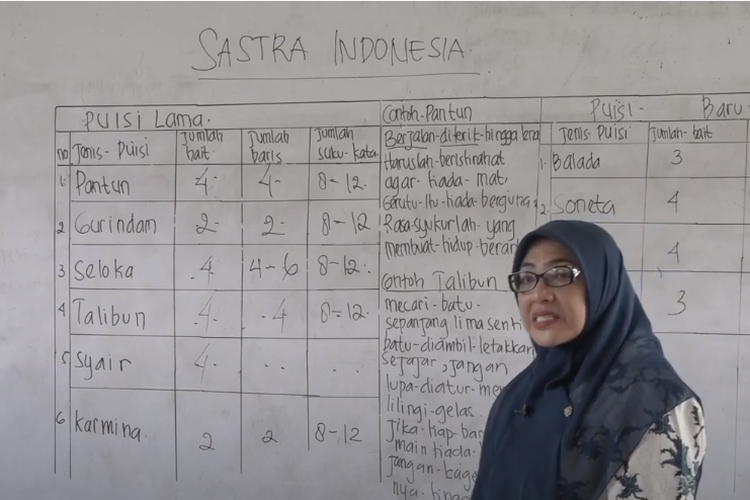 SASTRA INDONESIA
PUISI Lama.
no Jenis-Puisi Jumlah bait Jumlah baris Jumlah suku-kata
1. Pantun 4- 4- 8-12.
2 Gurindan 2- 2- 8-12
3 Seloka .4 4-6 8-12.
4 Talibun .4. .4 8-12.
5 Syair 4- .. ...
6 Karmina. 2 2 8-12
Contoh-Pantun
Berjalan-diterik-hingga
Haruslah-beristirahat
agar-tiada-mat,
itu-tiada-berguna
Rasa-syukurlah-yang
membuat-hidup
Contoh Talibun
mecari-batu-
sepanjang lima senti
batu-diambil-letakkan
sejajar, jangan
lupa-diatur
lilingi-gelas.
Jika-tiap
main tiada
jangan
nya-
Puisi- Baru
Jenis-Puisi Jumlah-bait
1. Balada 3
2. Soneta 4
4
3